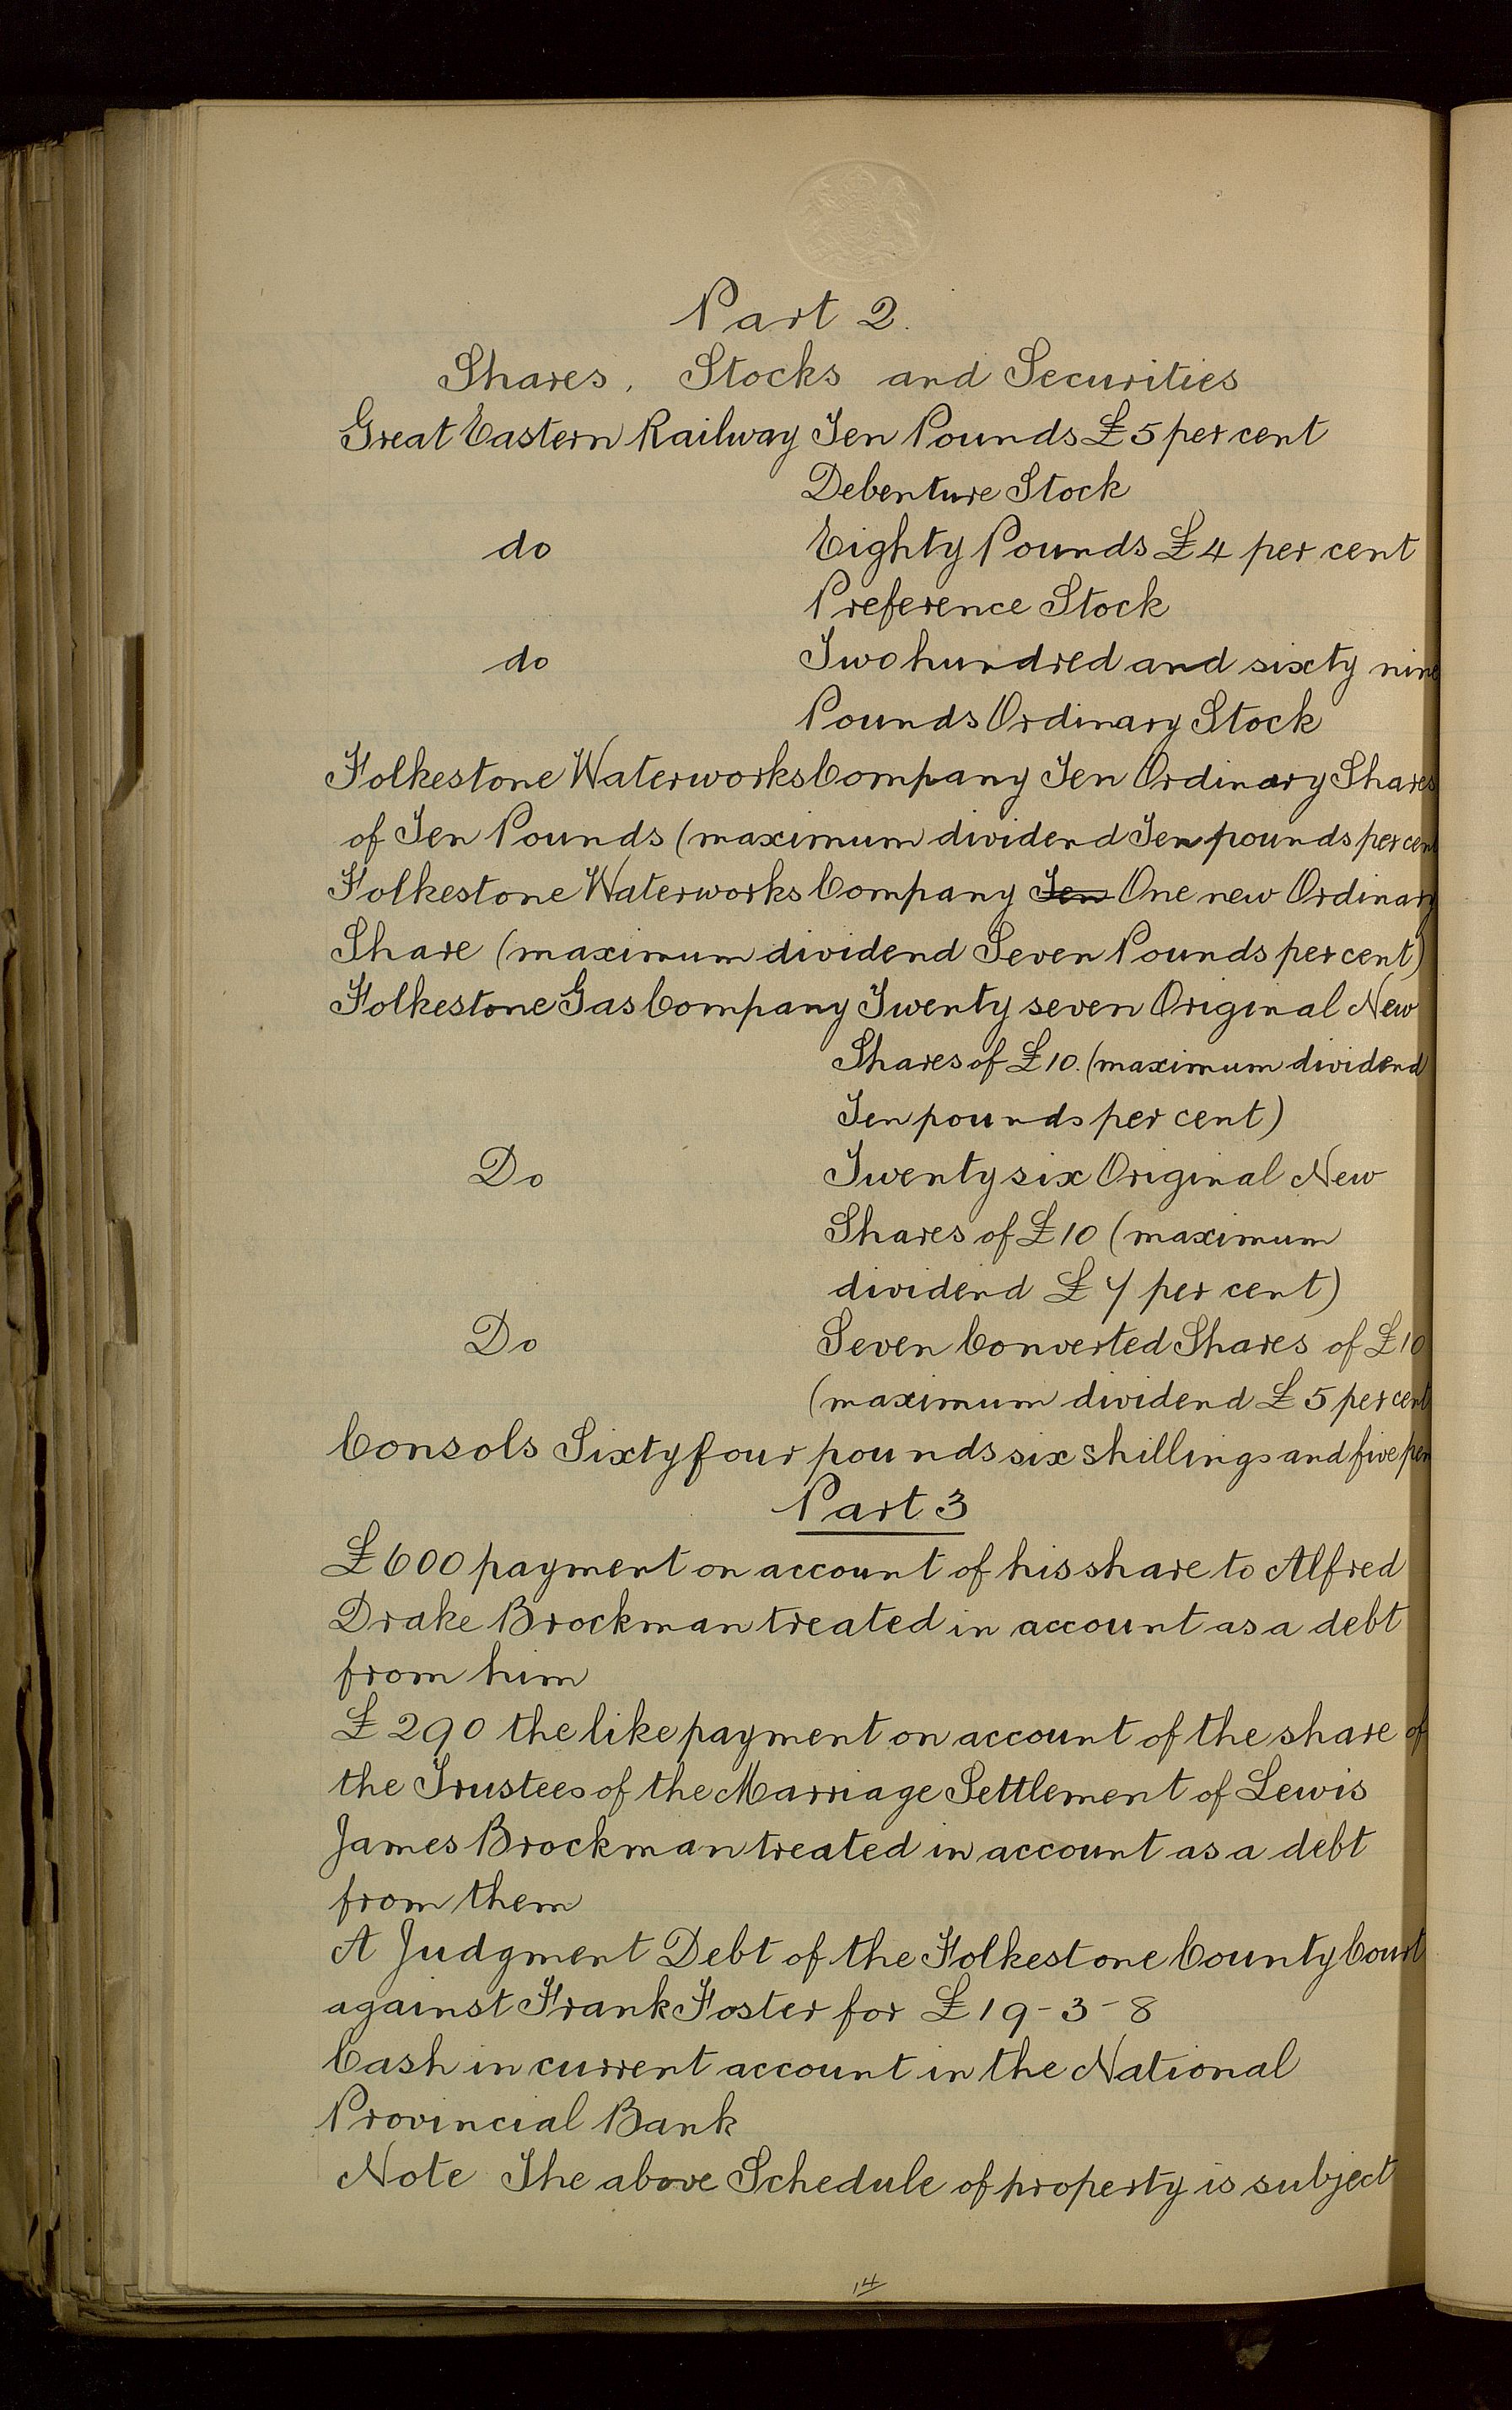 Part 2.
Shares, Stocks and Securities
Great Eastern Railway Ten Pounds £5 per cent
Debenture Stock
do Eighty Pounds £4 per cent
Preference Stock
do Two hundred and sixty nine
Pounds Ordinary Stock
Folkestone Waterworks Company Ten Ordinary Shares
of Ten Pounds (maximum dividend Ten pounds per cent
Folkestone Waterworks Company Ten One new Ordinary
Share (maximum dividend Seven Pounds per cent)
Folkestone Gas Company Twenty seven Original New
Shares of £10. (maximum dividend
Ten pounds per cent)
Do Twenty six Original New
Shares of £10 (maximum
dividend £7 per cent)
Do Seven Converted Shares of £10
(maximum dividend £5 per cent
Consols Sixty four pounds six shillings and five pen
Part 3
£600 payment on account of his share to Alfred
Drake Brockman treated in account as a debt
from him
£290 the like payment on account of the share of
the Trustees of the Marriage Settlement of Lewis
James Brockman treated in account as a debt
from them
A Judgment Debt of the Folkestone County Court
against Frank Foster for £19-3-8
Cash in current account in the National
Provincial Bank
Note The above Schedule of property is subject
14